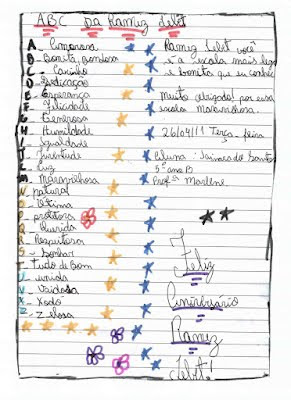 ABC Da Ramez Tebet
A - Amorosa
B - Bonita, bondosa
C - Carinho
D - Dedicação
E - Esperança
F - Felicidade
G - Generosa
H - Humildade
I - Igualdade
J - Juventude
L - Luz
M - Maravilhosa
N - natural
O - Otima
P - protetora
Q - Querida
R - Respeitosa
S - Sonhar
T - Tudo de Bom
U - unida
V - Vaidosa
X - Xodó
Z - Zelosa
Ramez Tebet você
é a escola mais legal
e bonita que eu conheci
Muito obrigado! por essa
escola Maravilhosa.
26/04/11 Terça-feira
Aluna: dos Santos
5º ano B
Profª Marlene
Feliz
Aniversário
Ramez
Tebet!